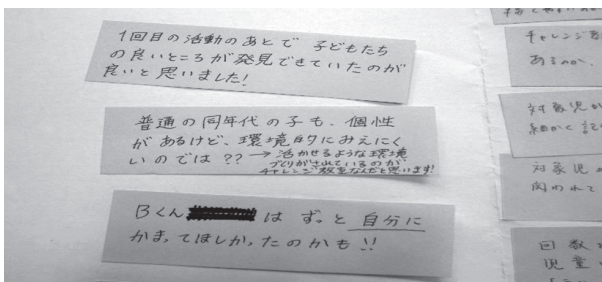 1回目の活動のあとで 子どもたち
の良いところが発見できていたのが
良いと思いました!
普通の同年代の子も、個性
があるけど、環境的にみえにく
いのでは?? → 活かせるような環境
づくりがされているのが
チャレンジ教室なんだと思います!
Bくん は ずっと 自分に
かまってほしかったのかも!!
チャレンジ
あるのか、
対象児が
細かく記
対象児の
向のれて
回数
児童